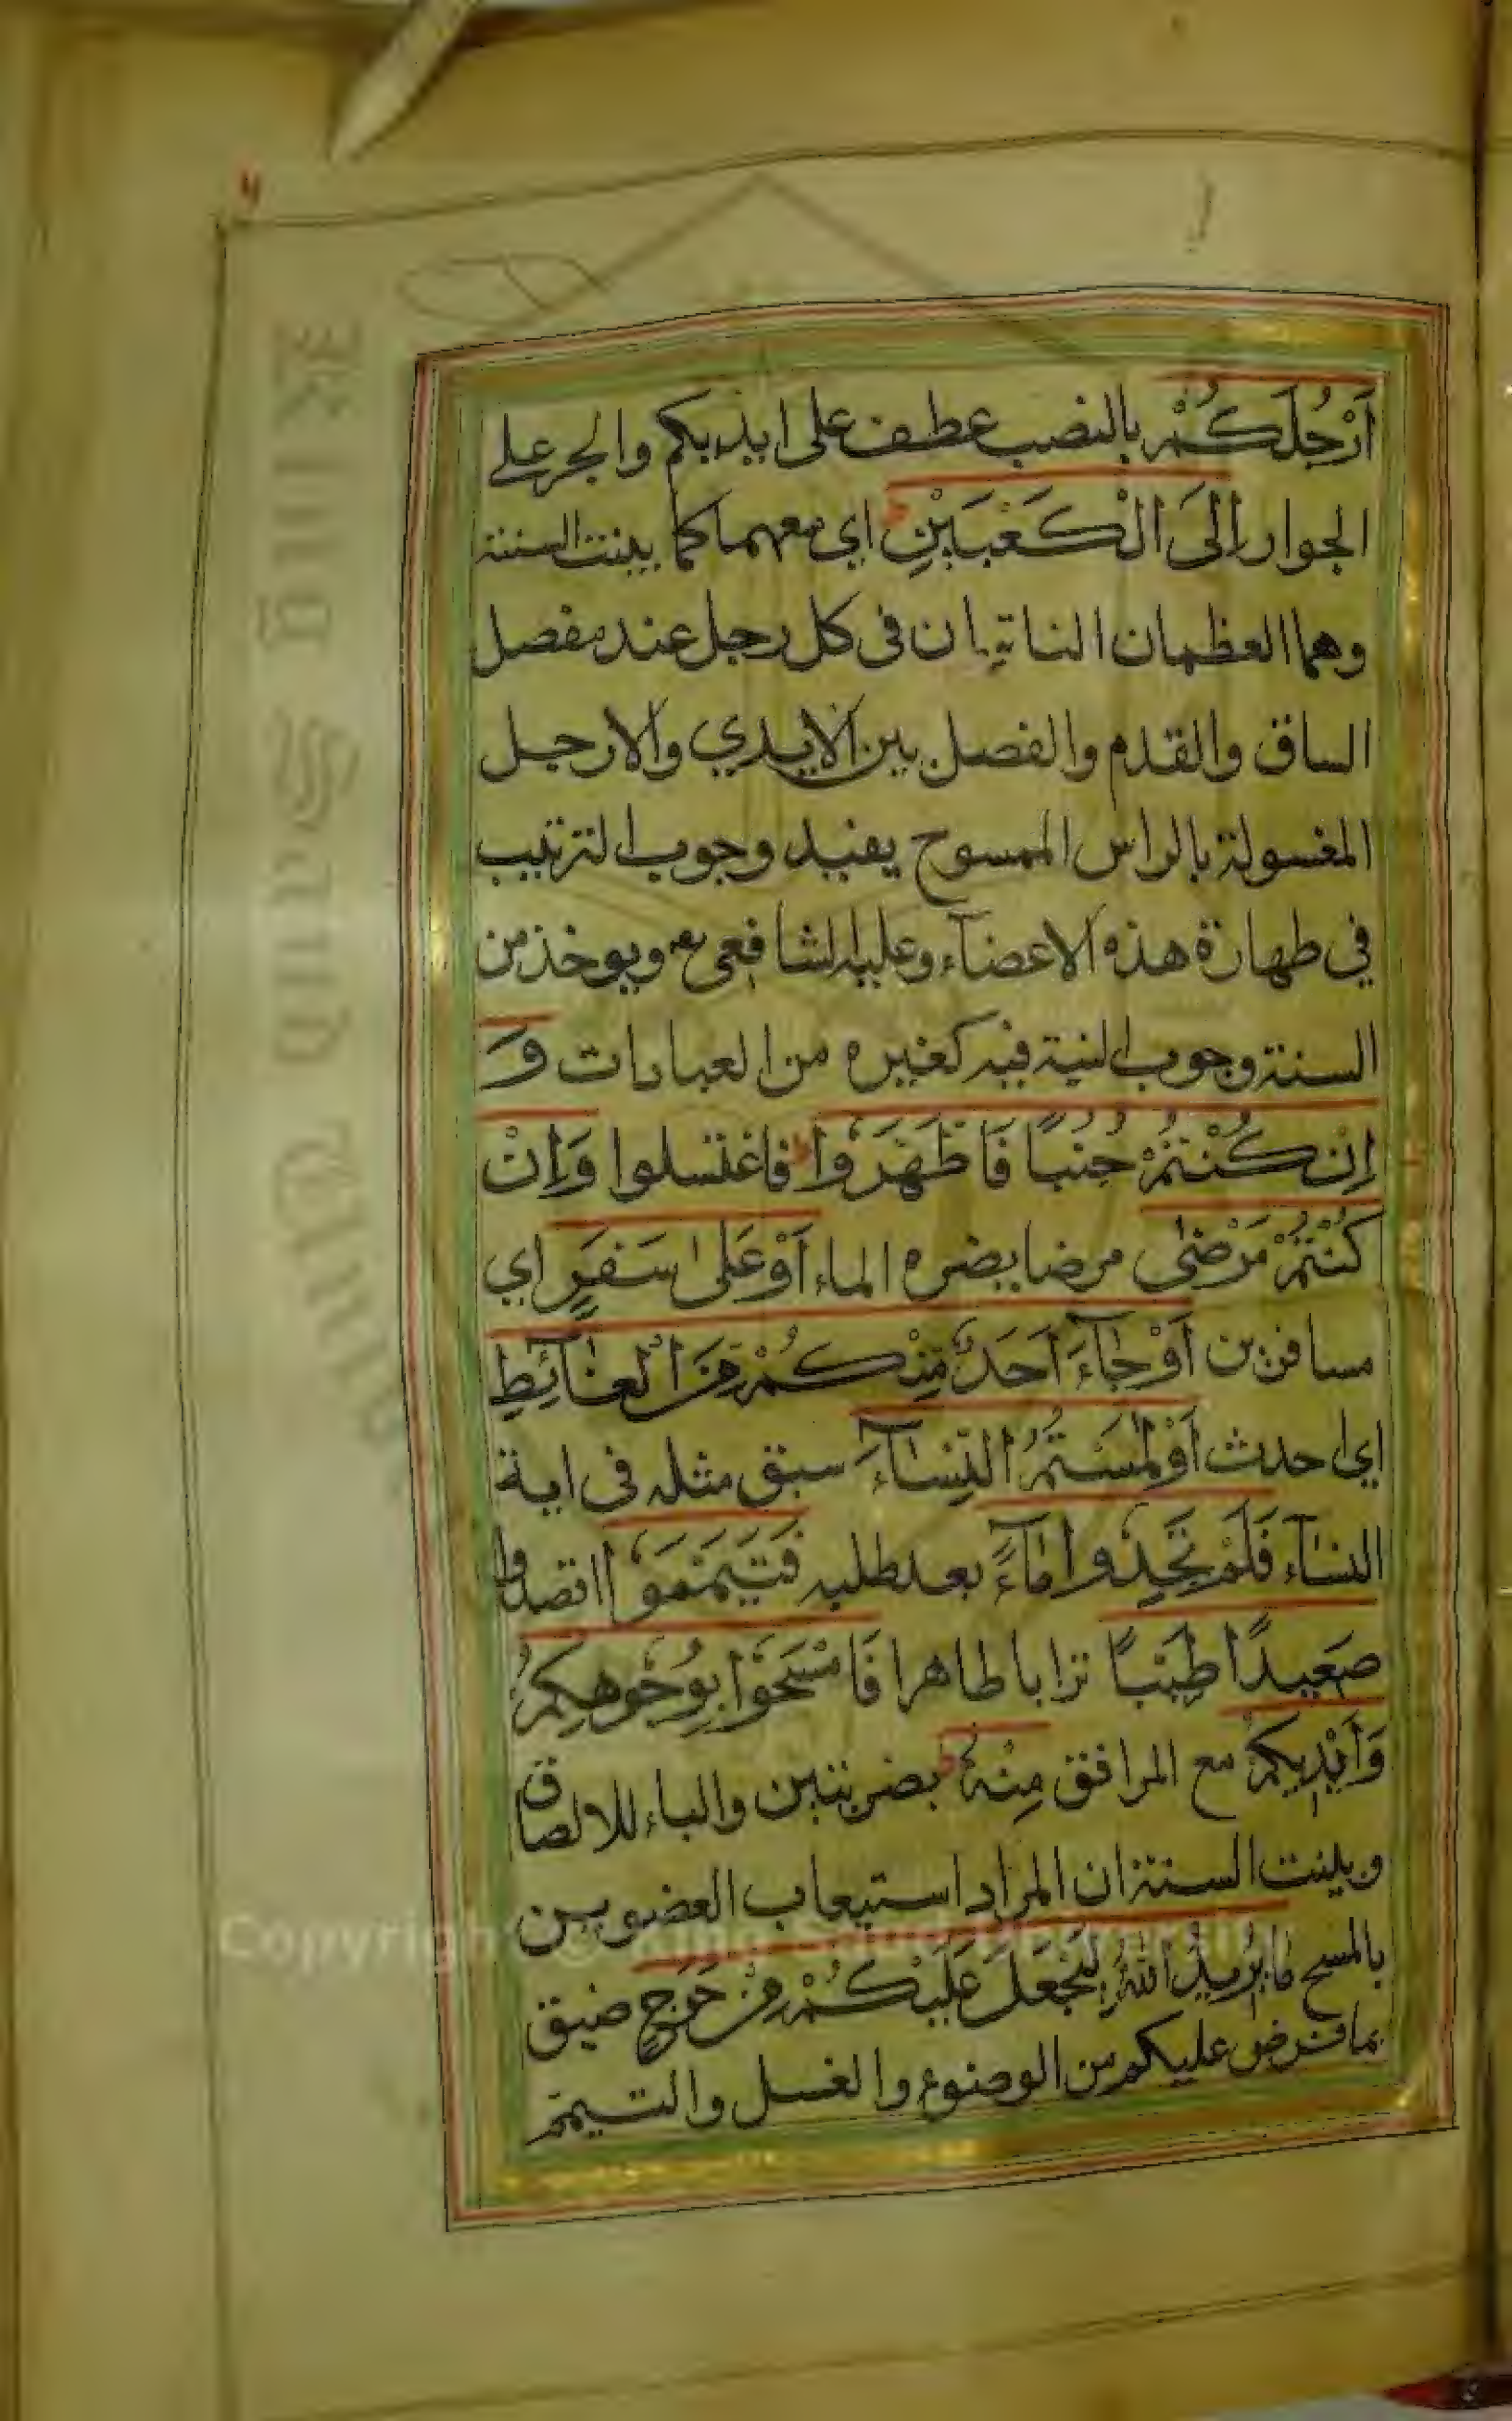 أَرْجُلَكُمْ بالنصب عطف على ايديكم والجر على
الجوار إِلَى الْكَعْبَيْنِ ط اي معهما كما بينت السنة
وهما العظمان الناتيان فى كل رجل عند مفصل
الساق والقدم والفصل بين الايدي والارجل
المغسولة بالراس الممسوح يفيد وجوب الترتيب
في طهارة هذه الاعضآء وعليه الشافعى ويوخذ من
السنة وجوب النية فيه كغيره من العبادات وَ
اِنْ كُنْتُمْ جُنُبًا فَاطَّهَّرُوا ط فاغتسلوا وَاِنْ
كُنْتُمْ مَرْضٰى مرضا يضره الماء اَوْ عَلٰى سَفَرٍ اي
مسافرين اَوْ جَآءَ اَحَدٌ مِّنْكُمْ مِّنَ الْغَآئِطِ
اي احدث اَوْ لٰمَسْتُمُ النِّسَآءَ سبق مثله فى اية
النسآء فَلَمْ تَجِدُوا مَآءً بعد طلبه فَتَيَمَّمُوْا اقصدوا
صَعِيدًا طَيِّبًا ترابا طاهرا فَامْسَحُوْا بِوُجُوْهِكُمْ
وَاَيْدِيكُمْ مع المرافق مِنْهُ ط بضربتين والباء للالصاق
وبينت السنة ان المراد استيعاب العضوين
بالمسح مَا يُرِيدُ اللّٰهُ لِيَجْعَلَ عَلَيْكُمْ مِنْ حَرَجٍ ضيق
بما فرض عليكم من الوضوء والغسل والتيمم
Copyright © King Saud University